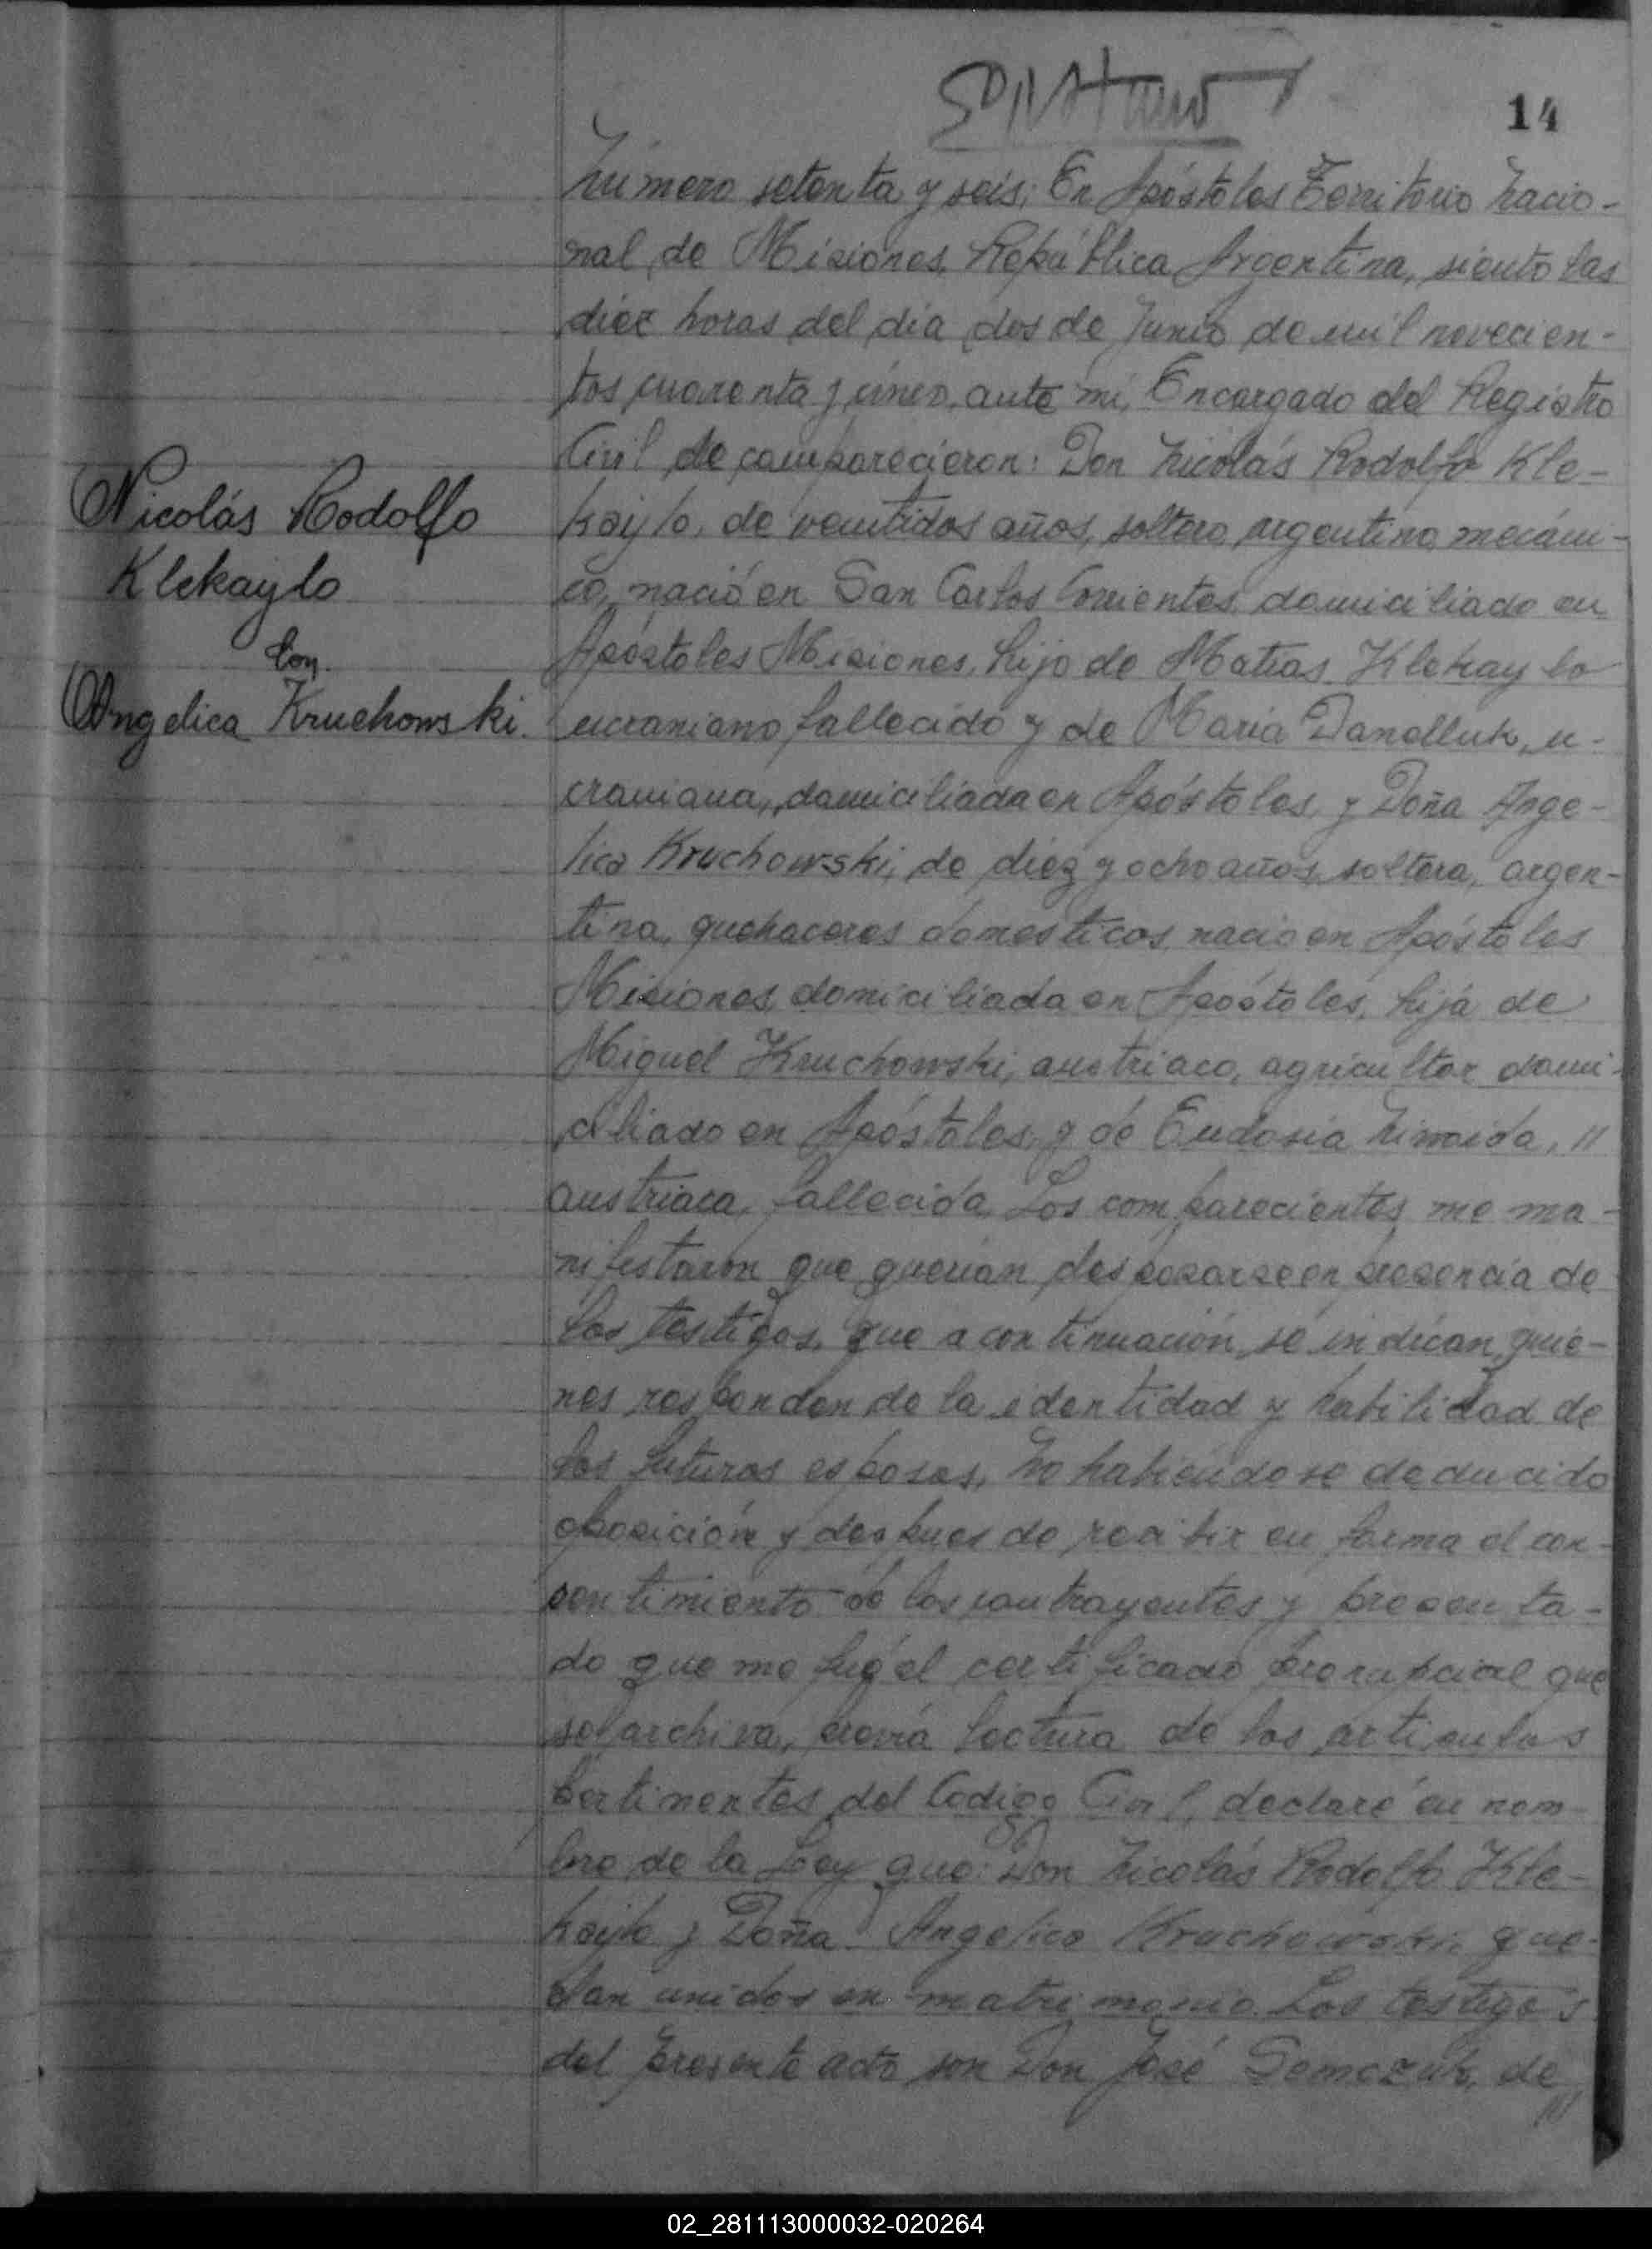 14
Número setenta y seis: En Apóstoles Territorio Nacio-
nal de Misiones República Argentina, siento las
diez horas del día dos de Junio de mil novecien-
tos cuarenta y cinco, ante mí, Encargado del Registro
Civil de comparecieron: Don Nicolás Rodolfo Kle-
kaylo, de veintidos años, soltero, argentino, mecáni-
co, nació en San Carlos Corrientes domiciliado en
Apóstoles Misiones, hijo de Matías Klekaylo
ucraniano fallecido y de María Danelluk, u-
craniana, domiciliada en Apóstoles, y Doña Ange-
lica Kruchowski, de diez y ocho años, soltera, argen-
tina, quehaceres domesticos, nacio en Apóstoles
Misiones, domiciliada en Apóstoles, hija de
Miguel Kruchowski, austriaco, agricultor domi-
ciliado en Apóstoles, y de Eudosia, "
austriaca, fallecida. Los comparecientes me ma-
nifestaron que querían desposarse en presencia de
los testigos, que a continuación se indican, quie-
nes responden de la identidad y habilidad de
los futuros esposos. No habiendose deducido
oposición y despues de recibir en forma el con-
sentimiento de los contrayentes y presenta-
do que me fué el certificado prenupcial que
se archiva, previa lectura de los articulos
pertinentes del Codigo Civil, declaré en nom-
bre de la Ley que: Don Nicolás Rodolfo Kle-
kaylo y Doña Angelica Kruchowski, que-
dan unidos en matrimonio. Los testigos
del presente acto son Don José Semczuk, de
Nicolás Rodolfo
Klekaylo
Con
Angelica Kruchowski.
02_281113000032-020264